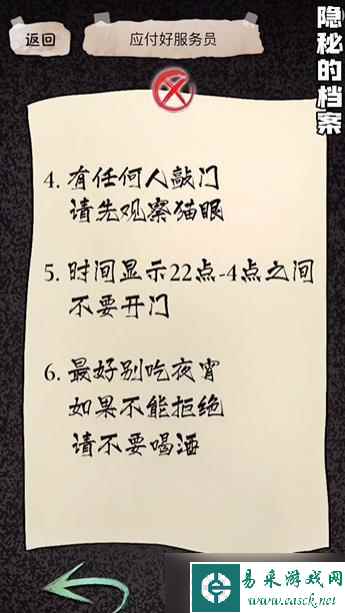 返回
应付好服务员
隐秘的档案
4. 有任何人敲门
请先观察猫眼
5. 时间显示22点-4点之间
不要开门
6. 最好别吃夜宵
如果不能拒绝
请不要喝酒
易采游戏网
www.easck.net